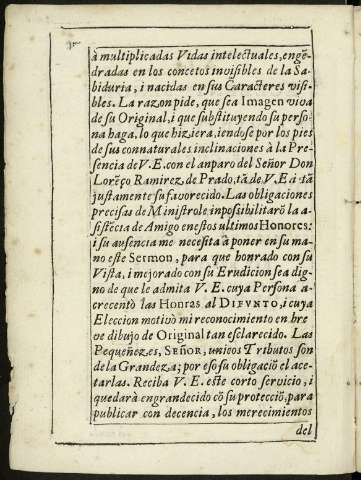 à multiplicadas Vidas intelectuales, engẽ-
dradas en los concetos invisibles de la Sa-
biduria, i nacidas en sus Caracteres visi-
bles. La razon pide, que sea Imagen viva
de su Original, i que substituyendo su perso-
na haga, lo que hiziera, iendose por los pies
de sus connaturales inclinaciones à la Pre-
sencia de V.E. con el anparo del Señor Don
Lorẽço Ramirez, de Prado, tã de V.E. i tã
justamente su favorecido. Las obligaciones
precisas de Ministro le inpossibilitarõ la a-
sistẽcia de Amigo en estos ultimos Honores:
i su ausencia me necesita à poner en su ma-
no este Sermon, para que honrado con su
Vista, i mejorado con su Erudicion sea dig-
no de que le admita V. E. cuya Persona a-
crecentò las Honras al DIFUNTO, i cuya
Eleccion motivò mi reconocimiento en bre
ve dibujo de Original tan esclarecido. Las
Pequeñezes, SEÑOR, unicos Tributos son
de la Grandeza; por eso sũ obligaciõ el ace-
tarlas. Reciba V. E. este corto servicio, i
quedarà engrandecido cõ su protecciõ, para
publicar con decencia, los merecimientos
del